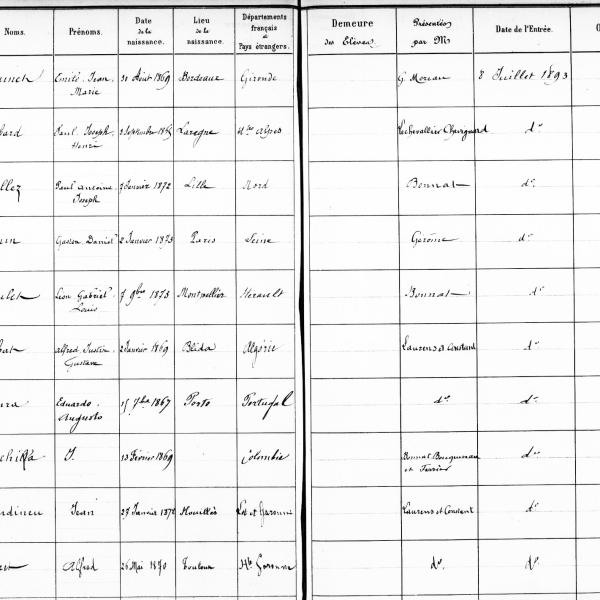 Noms. Prénoms. Date de la naissance. Lieu de la naissance. Départements français et Pays étrangers. Demeure des Elèves. Présentés par M Date de l'Entrée.
Emile. Jean. Marie Août 1869 Bordeaux Gironde G. Moreau 8 Juillet 1893
Paul. Joseph. Henri Septembre Laragne Alpes Lechevallier Chevignard do
Paul antoine Joseph Janvier 1872 Lille Nord Bonnat do
Gaston Daniel 2 Janvier 1873 Paris Seine Gérôme do
Léon Gabriel Louis 7 9bre 1873 Montpellier Hérault Bonnat do
Alfred. Justin. Gustave 2 Janvier 1869 Blida Algérie Laurens et Constant do
Eduardo. Augusto 15 7bre 1867 Porto Portugal do do
J. 13 Février 1869 Colombie Bonnat Bouguereau et Ferrier do
Jean 27 Janvier 1872 Houillès Lot et Garonne Laurens et Constant do
Alfred 26 Mai 1870 Toulouse Hte Garonne do do